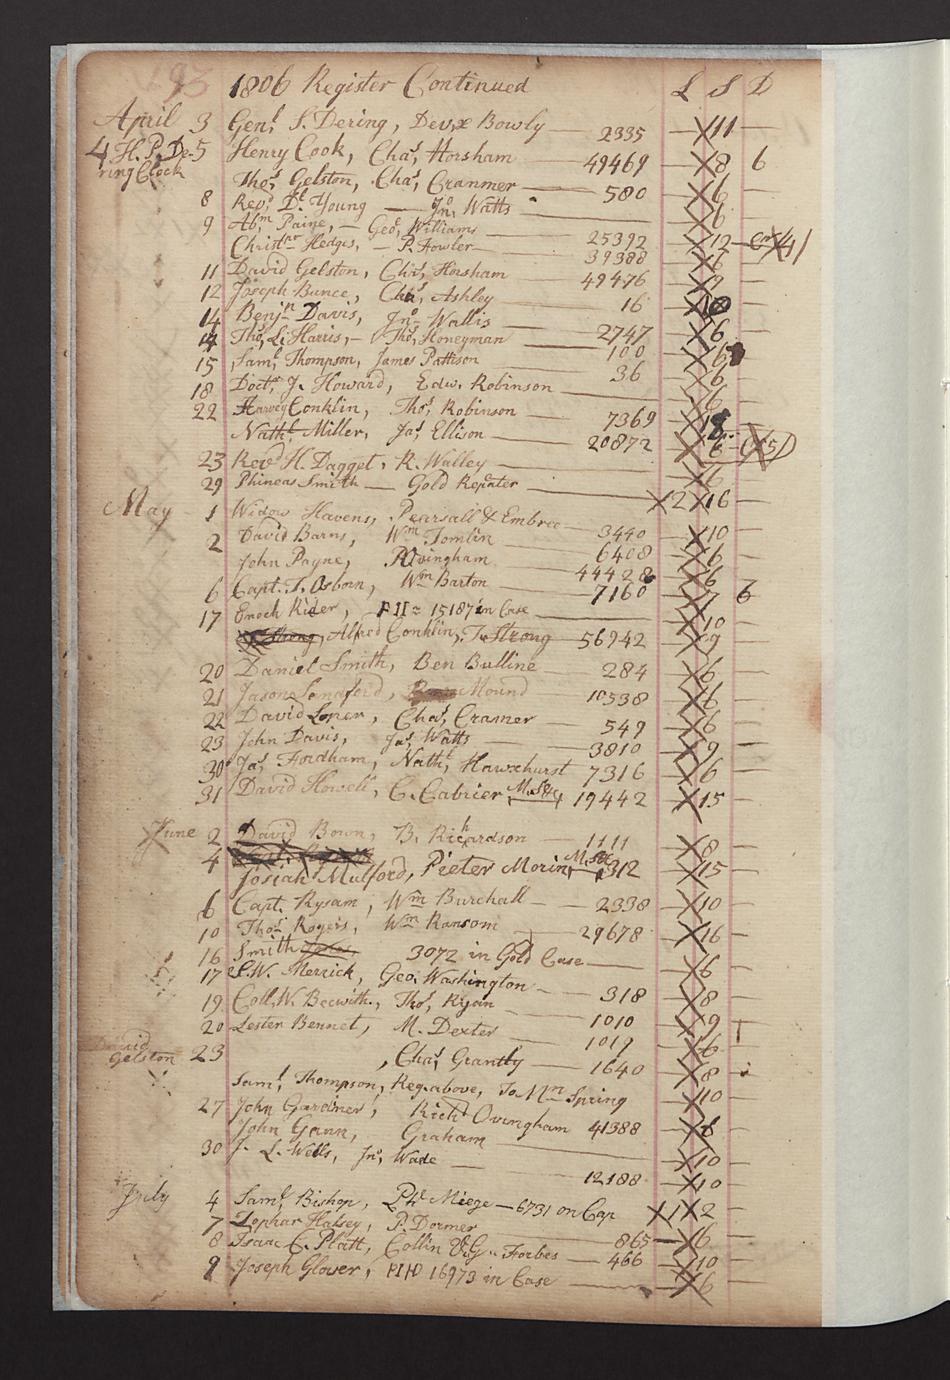 193 1806 Register Continued L S D
April 3 Genl. S. Dering, Devx Bowly 2335 11
4 H. P. De- 5 Henry Cook, Chas. Horsham 49469 8 6
ring Clock
Thos. Gelston, Chas. Cranmer 580 6
8 Revd. Dl. Young Jno. Watts 6
9 Abm. Paine, Geoe. Williams 25392 12
Christnr. Hedges, P. Fowler 39388 6
11 David Gelston, Chas. Horsham 49476
12 Joseph Bunce, Chas. Ashley 16 10
14 Benjn. Davis, Jno. Wallis 2747 6
14 Thos. L. Harris, Thos. Honeyman 100 6
15 Saml. Thompson, James Pattison 36 6
18 Doctr. J. Howard, Edw. Robinson 6
22 Harvey Conklin, Thos. Robinson 7369
Nathl. Miller, Jas. Ellison 20872 6
23 Revd. H. Dagget, R. Walley 6
29 Phineas Smith Gold Repater 2 16
May 1 Widow Havens, Pearsall & Embree 3440 10
2 David Barns, Wm. Tomlin 6408 6
John Payne, Ovingham 44428 6
6 Capt. T. Osborn, Wm Barton 7160 7 6
17 Enoch Rider, PII 15187 in Case 10
Alfred Conklin, T. Strong 56942 9
20 Daniel Smith, Ben Bulline 284 6
21 Jason Langford, Mound 10538 6
22 David Loper, Chas. Cramer 549 6
23 John Davis, Jas. Watts 3810 9
30 Jas. Fordham, Nathl. Hawxhurst 7316 6
31 David Howell, C. Cabrier 19442 15
June 2 David Bown, B. Richardson 1111 8
4
Josiah Mulford, Pieter Morin 312 15
6 Capt. Rysam, Wm Burchall 2338 10
10 Thos. Rogers, Wm Ransom 29678 16
16 Smith 3072 in Gold Case 6
17 S. W. Merrick, Geo. Washington 318 8
19 Coll. W. Becwith, Thos. Ryan 1010 9
20 Lester Bennet, M. Dexter 1019 6
David
Gelston 23 Chas. Grantly 1640 8
Saml. Thompson, Reg. above, To Mn Spring 10
27 John Gardiner, Richd Ovingham 41388 6
John Gann, Graham 10
30 J. L. Wells, Jno. Wade 12188 10
July 4 Saml. Bishop, Phe Miege 6731 on Cap 1 2
7 Zophar Halsey, P. Dormer 865 6
8 Isaac C. Platt, Collin & G. Forbes 466 10
9 Joseph Glover, 16973 in Case 6